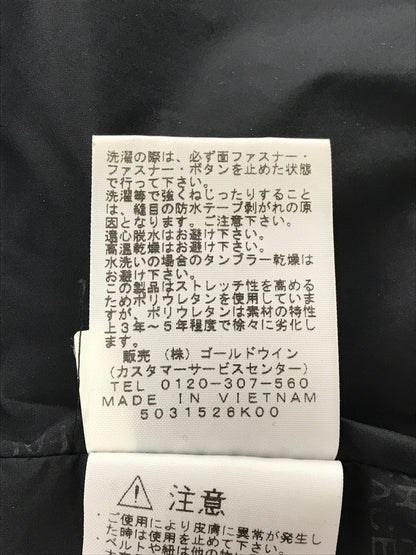 洗濯の際は、必ず面ファスナー・
ファスナー・ボタンを止めた状態
で行って下さい。
洗濯等で強くねじったりすること
は、縫目の防水テープ剥がれの原
因となります。ご注意下さい。
遠心脱水はお避け下さい。
高温乾燥はお避け下さい。
水洗いの場合のタンブラー乾燥は
お避け下さい。
この製品はストレッチ性を高める
ためポリウレタンを使用していま
すが、ポリウレタンは素材の特性
上3年~5年程度で徐々に劣化し
ます。
販売 (株) ゴールドウイン
(カスタマーサービスセンター)
TEL 0120-307-560
MADE IN VIETNAM
5031526K00
注意
ご使用により皮膚に異常が発生し
た時は使用を止めて下さい。
ベルトや紐は他の物